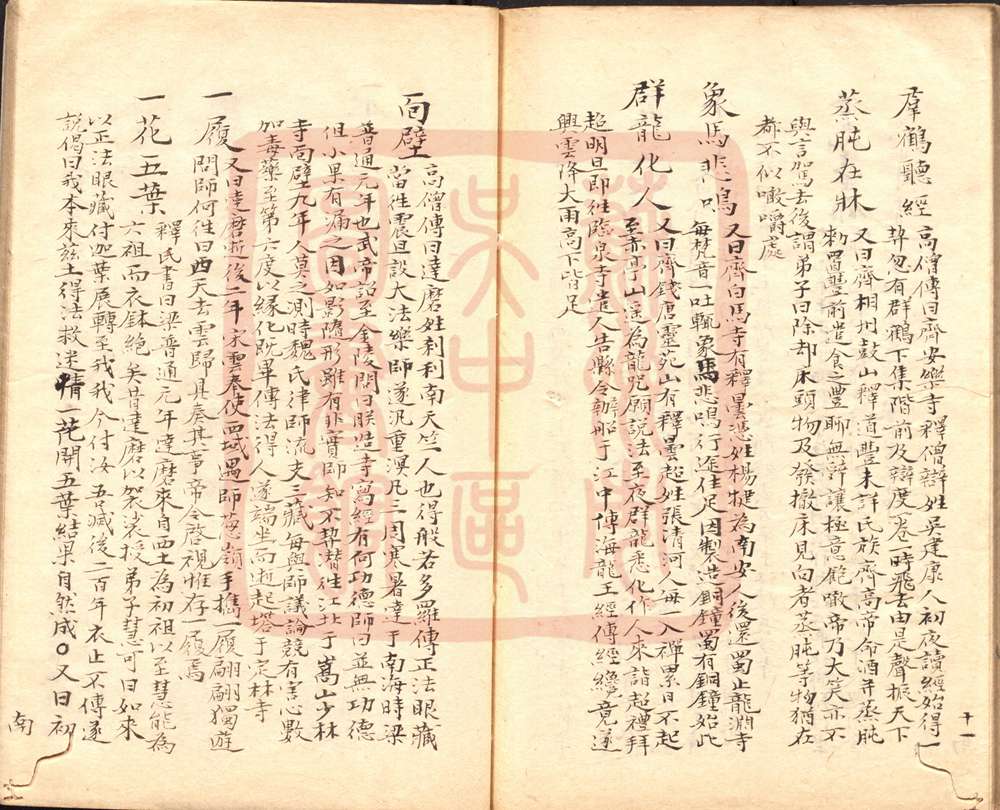 羣鶴聽經 高僧傳曰齊安樂寺釋僧辯姓吳建康人初夜讀經始得一
契忽有群鶴下集階前及辯度卷一時飛去由是聲振天下
蒸肫在牀 又曰齊相州鼓山釋道豐未詳氏族齊高帝命酒并蒸肫
勅置豐前遣食之豐聊無辭讓極意飽噉帝乃大笑亦不
與言駕去後謂弟子曰除却床頭物及發撤床見向者蒸肫等物猶在
都不似噉嚼處
象馬悲鳴 又曰齊白馬寺有釋曇憑姓楊揵為南安人後還蜀止龍淵寺
每梵音一吐輒象馬悲鳴行途住足因製造銅鐘蜀有銅鐘始此
群龍化人 又曰齊錢唐靈苑山有釋曇超姓張清河人每一入禪累日不起
至赤亭山遥為龍咒願説法至夜群龍悉化作人來詣超禮拜
超明旦即往臨泉寺遣人告縣令辦船于江中傳海龍王經傳經纔竟遂
興雲降大雨高下皆足
十一
面壁 高僧傳曰達磨姓刹利南天竺人也得般若多羅傳正法眼藏
當往震旦設大法樂師遂汎重溟凡三周寒暑達于南海時梁
普通元年也武帝詔至金陵問曰朕造寺寫經有何功德師曰並無功德
但小果有漏之因如影隨形雖有非實師知不契潜往江北于嵩山少林
寺面壁九年人莫之測時魏氏律師流支三藏每與師議論競有害心數
加毒藥至第六度以緣化既畢傳法得人遂端坐而逝起塔于定林寺
一履 又曰達磨逝後二年宋雲奉使西域遇師葱嶺手攜一履翩翩獨逝
問師何往曰西天去雲歸具奏其事帝令啓視惟存一履焉
一花五葉 釋民書曰梁普通元年達磨來自西土為初祖以至慧能為
六祖而衣鉢絶矣昔達磨以袈裟授弟子慧可曰如來
以正法眼藏付迦葉展轉至我我今付汝吾滅後二百年衣止不傳遂
説偈曰我本來玆土得法救迷情一花開五葉結果自然成○又曰初
南